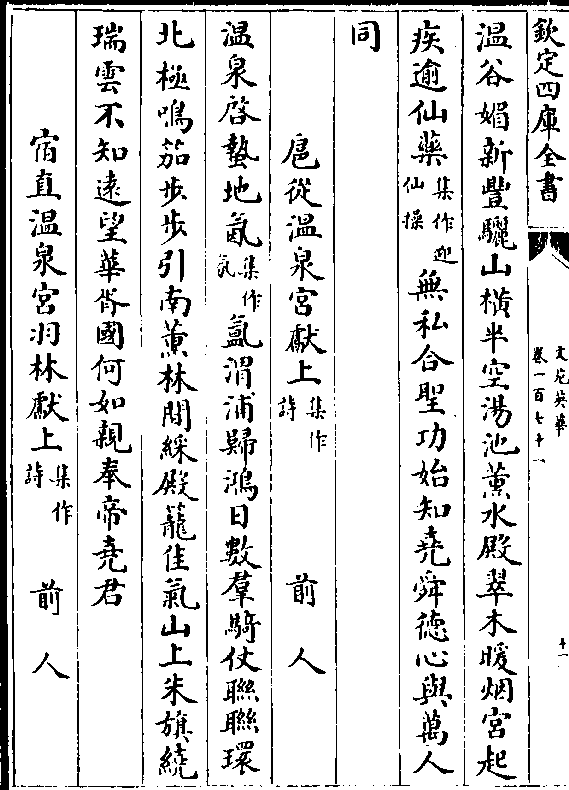 欽定四庫全書
文苑英華
卷一百七十一
十一
温谷媚新豐驪山橫半空湯池薰水殿翠木暖烟宮起
疾逾仙藥集作迎仙操無私合聖功始知堯舜德心與萬人
同
扈從温泉宮獻上集作詩 前人
温泉啓蟄地氤集作氛氳渭浦歸鴻日數羣騎仗聯聯環
北極鳴笳步步引南薰林間綵殿籠佳氣山上朱旗繞
瑞雲不知遠望華胥國何如親奉帝堯君
宿直温泉宮羽林獻上集作詩 前人